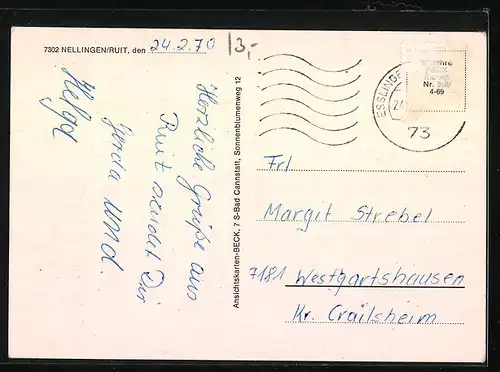 7302 NELLINGEN/RUIT, den 24.2.70
13,-
Herzliche Grüße aus
Ruit sendet Dir
Gerda und
Helga
Ansichtskarten-BECK, 7 S-Bad Cannstatt, Sonnenblumenweg 12
ESSLINGE
24.
73
Nr.
4-69
Frl
Margit Strebel
7181 Westgartshausen
Kr. Crailsheim